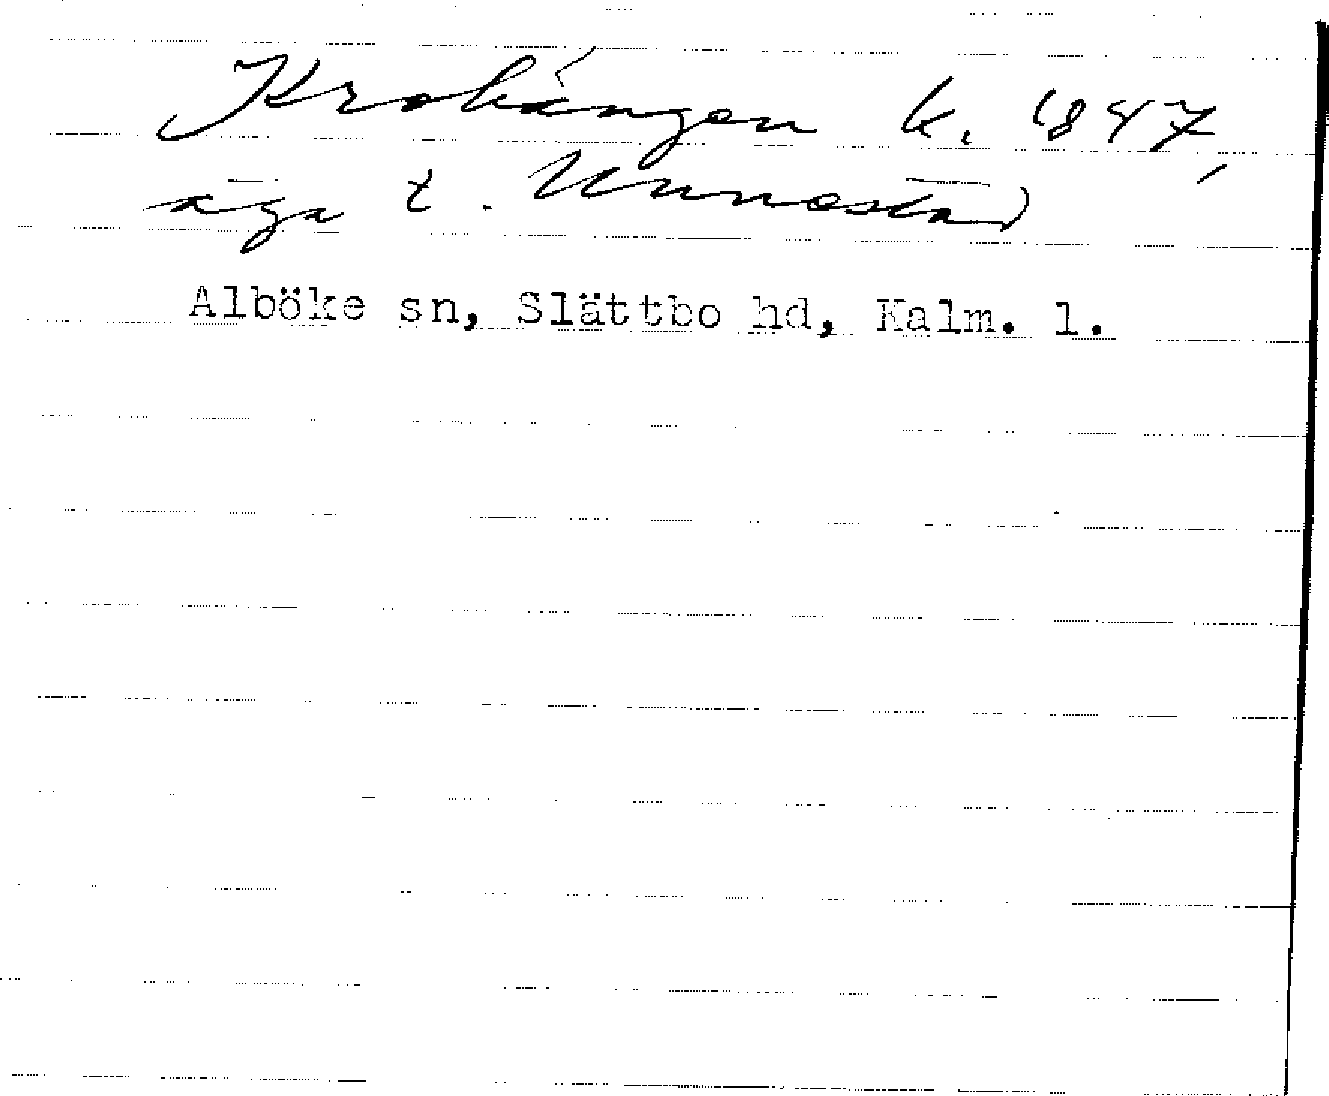 Krokängen k. 1847,
äga t. Unnostad
Alböke sn, Slättbo hd, Kalm. l.